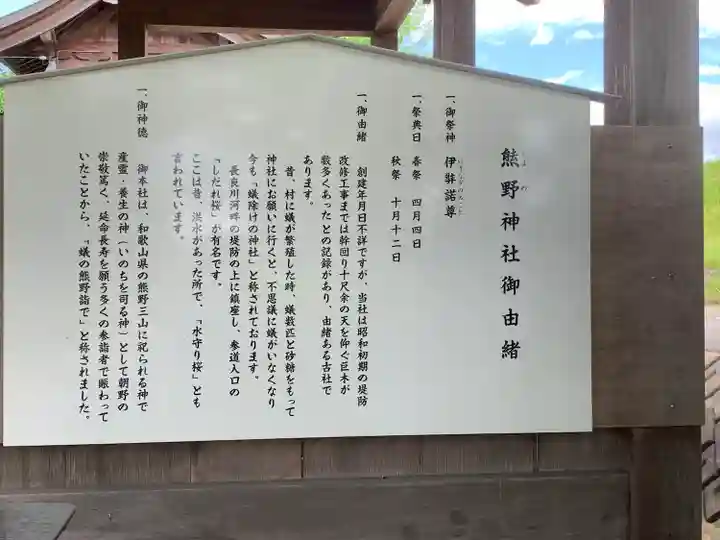 熊野神社御由緒
一、御祭神 伊弉諾尊
一、祭典日 春祭 四月四日
秋祭 十月十二日
一、御由緒 創建年月日不詳ですが、当社は昭和初期の堤防
改修工事までは幹回り十尺余の天を仰ぐ巨木が
数多くあったとの記録があり、由緒ある古社で
あります。
昔、村に蟻が繁殖した時、蟻数匹と砂糖をもって
神社にお願いに行くと、不思議に蟻がいなくなり
今も「蟻除けの神社」と称されております。
長良川河畔の堤防の上に鎮座し、参道入口の
「しだれ桜」が有名です。
ここは昔、洪水があった所で、「水守り桜」とも
言われています。
一、御神徳 御本社は、和歌山県の熊野三山に祀られる神で
産霊・養生の神(いのちを司る神)として朝野の
崇敬篤く、延命長寿を願う多くの参詣者で賑わって
いたことから、「蟻の熊野詣で」と称されました。